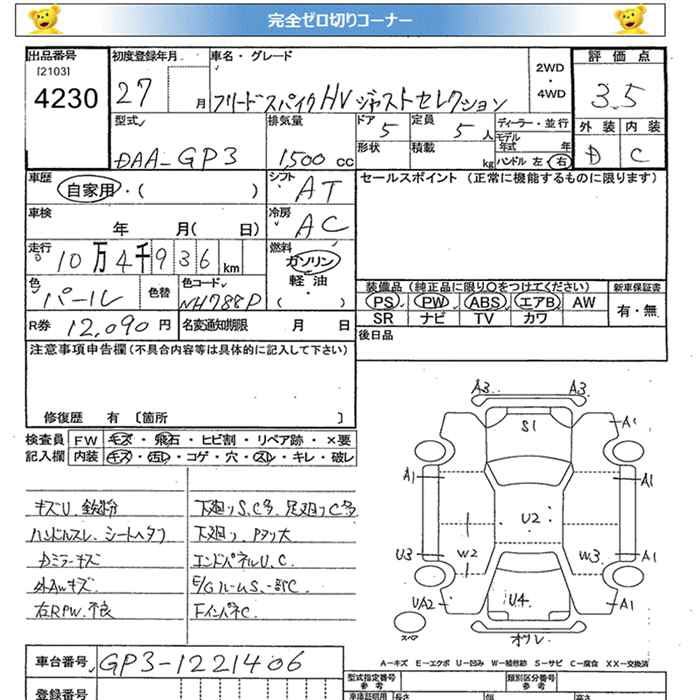 完全ゼロ切りコーナー
出品番号 初度登録年月 車名・グレード 2WD・4WD 評価点
[2103]
4230 27 月 フリードスパイクHV ジャストセレクション 3.5
型式 排気量 ドア 定員 ディーラー・並行 外装 内装
DAA-GP3 1500 cc 5 5人 モデル年式 年 D C
形状 積載 kg ハンドル 左 右
車歴 シフト セールスポイント (正常に機能するものに限ります)
自家用・( ) AT
車検 冷房
年 月( 日) AC
走行 燃料
10万4千936km ガソリン
軽油
( ・ )
色 色替 色コード 装備品 (純正品に限り○をつけてください) 新車保証書
パール NH788P PS PW ABS エアB AW 有・無
SR ナビ TV カワ
R券 12,090円 名変通知期限 月 日 後日品
注意事項申告欄(不具合内容等は具体的に記入して下さい)
修復歴 有 〔箇所 〕
検査員 FW キズ・飛石・ヒビ割・リペア跡・×要
記入欄 内装 キズ・汚レ・コゲ・穴・スレ・キレ・破レ
キズU. 鉄粉 下廻りS.C多 足廻りC多
ハンドルスレ、シートヘタリ 下廻り、Pヌリ大
Dミラーキズ エンドパネルU.C
外AWキズ E/GルームS.一部C
右RPW.不良 FインパネC
A3 A3
S1 A1
A1 A1
U2
U3 W2 W3 A1
UA2 U4 A1
スペア オソレ
A-キズ E-エクボ U-凹み W-補修跡 S-サビ C-腐食 XX-交換済
車台番号 GP3-1221406
型式指定番号 参考 類別区分番号 参考
登録番号 車庫証明用 長さ 幅 高さ